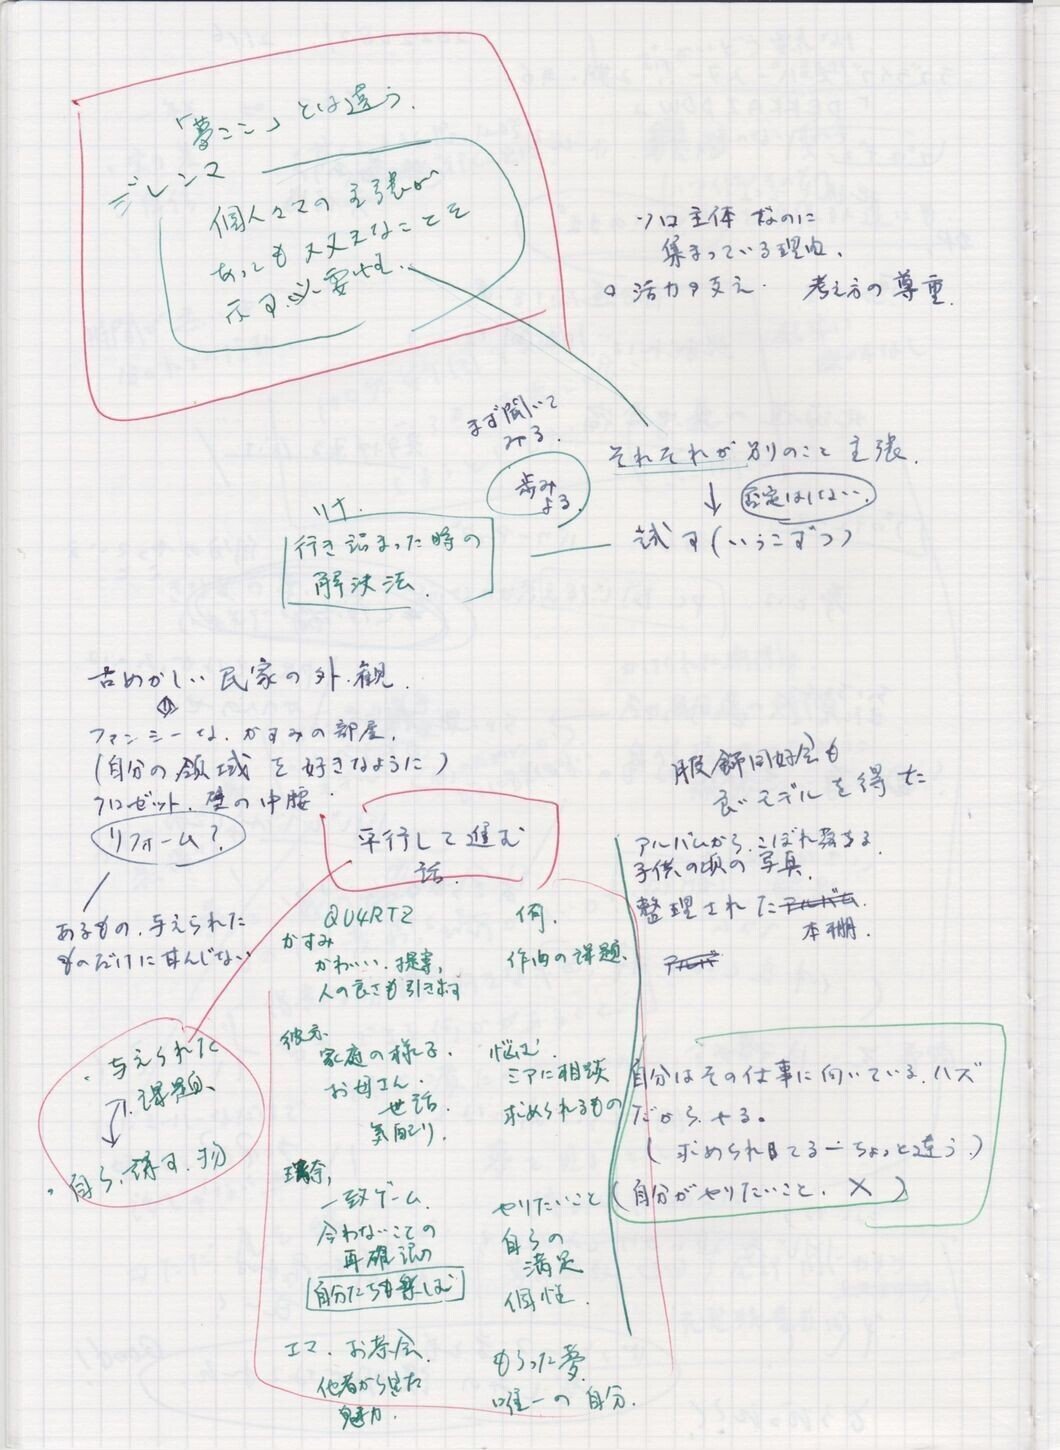 「夢ここ」とは違う.
ジレンマ
個人々々の主張が
あっても大丈夫なことを
示す.必要性.
ソロ主体 なのに
集まっている理由.
活力の支え. 考え方の尊重.
まず聞いて
みる.
歩み
よる.
それぞれが別のこと主張.
否定はしない.
試す(いっこずつ)
リナ.
行き詰まった時の
解決法.
古めかしい民家の外観.
ファンシーな.かすみの部屋.
(自分の領域を好きなように)
クロゼット.壁の中腰
リフォーム?
あるもの.与えられた
ものだけに甘んじない
服飾同好会も
良いモデルを得た
アルバムから.こぼれ落ちる.
子供の頃の写真.
整理されたアルバム
本棚.
アルバ
平行して進む
話.
QU4RTZ
侑.
かすみ
かわいい.提案,
人の良さも引き出す
作曲の課題、
彼方.
家庭の様子.
お母さん.
世話.
気配り.
悩む.
ミアに相談
求められるもの
璃奈,
一致ゲーム.
合わないことの
再確認の
自分たちも楽しむ
やりたいこと
自らの
満足
個性.
エマ.お茶会.
他者から見た
魅力.
もらった夢.
唯一の自分.
・与えられた
課題、
・自ら、課す.物
自分はその仕事に向いている.ハズ
だから.やる。
(求められてるーちょっと違う.)
(自分がやりたいこと. ×)